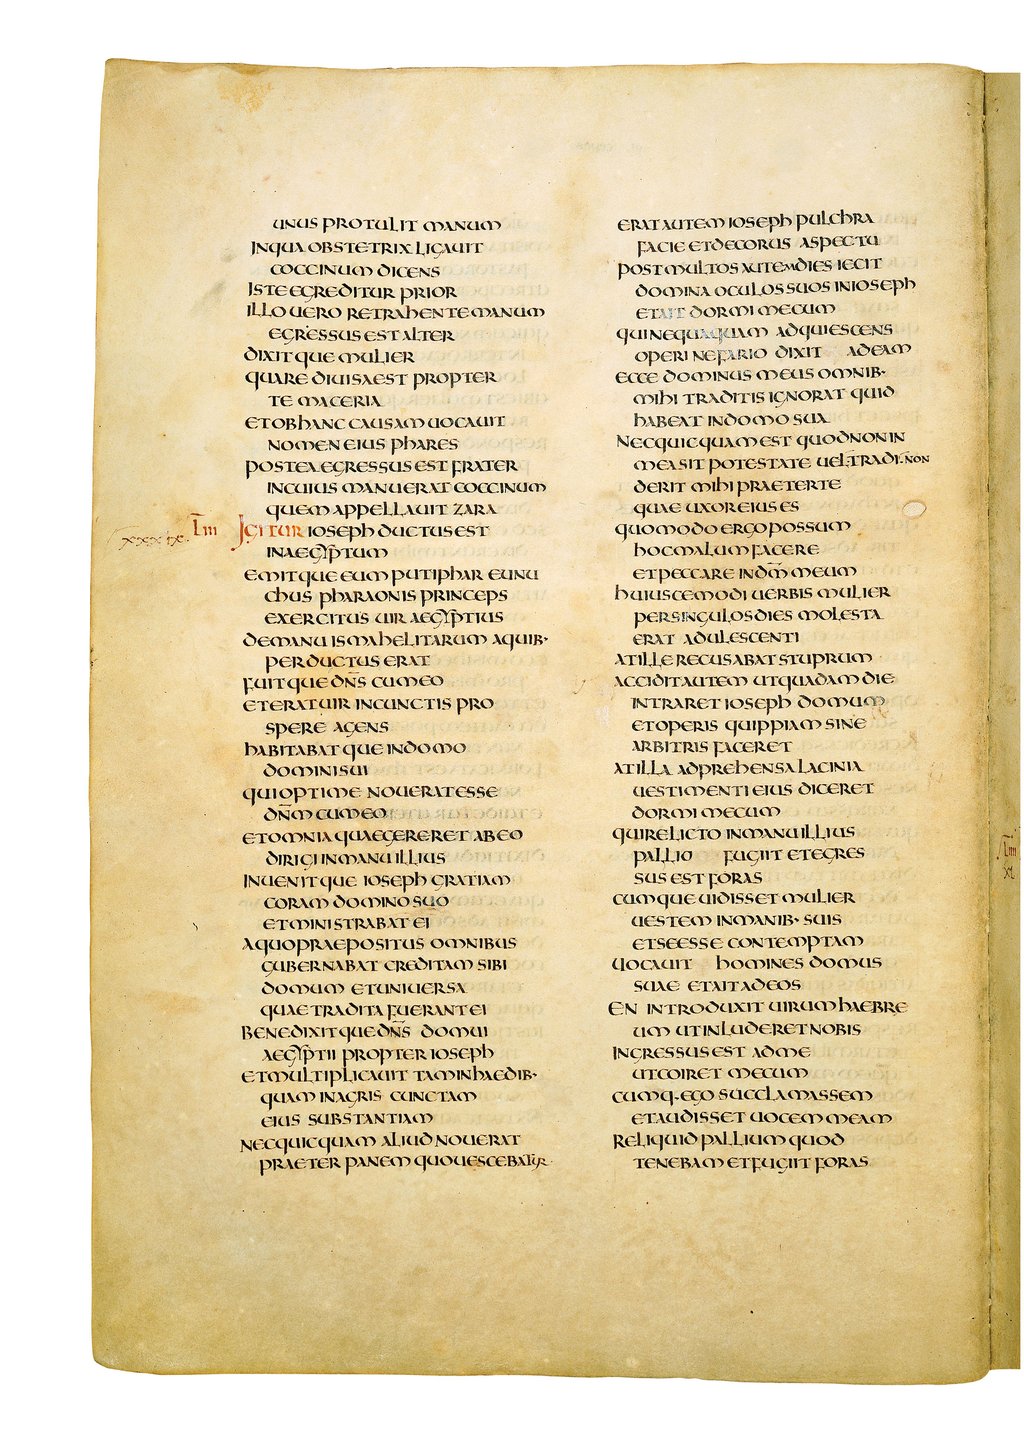 UNUS PROTULIT MANUM
INQUA OBSTETRIX LIGAUIT
COCCINUM DICENS
ISTE EGREDITUR PRIOR
ILLO UERO RETRAHENTE MANUM
EGRESSUS EST ALTER
DIXITQUE MULIER
QUARE DIUISA EST PROPTER
TE MACERIA
ET OB HANC CAUSAM UOCAUIT
NOMEN EIUS PHARES
POSTEA EGRESSUS EST FRATER
IN CUIUS MANU ERAT COCCINUM
QUEM APPELLAUIT ZARA
xxxix. L̅IIII IGITUR IOSEPH DUCTUS EST
IN AEGYPTUM
EMITQUE EUM PUTIPHAR EUNU
CHUS PHARAONIS PRINCEPS
EXERCITUS UIR AEGYPTIUS
DE MANU ISMAHELITARUM A QUIB·
PERDUCTUS ERAT
FUITQUE DN̅S CUM EO
ET ERAT UIR IN CUNCTIS PRO
SPERE AGENS
HABITABATQUE IN DOMO
DOMINI SUI
QUI OPTIME NOUERAT ESSE
DN̅M CUM EO
ET OMNIA QUAE GERERET AB EO
DIRIGI IN MANU ILLIUS
INUENITQUE IOSEPH GRATIAM
CORAM DOMINO SUO
ET MINISTRABAT EI
A QUO PRAEPOSITUS OMNIBUS
GUBERNABAT CREDITAM SIBI
DOMUM ET UNIUERSA
QUAE TRADITA FUERANT EI
BENEDIXITQUE DN̅S DOMUI
AEGYPTII PROPTER IOSEPH
ET MULTIPLICAUIT TAM IN HAEDIB·
QUAM IN AGRIS CUNCTAM
EIUS SUBSTANTIAM
NEC QUICQUAM ALIUD NOUERAT
PRAETER PANEM QUO UESCEBATUR
ERAT AUTEM IOSEPH PULCHRA
FACIE ET DECORUS ASPECTU
POST MULTOS AUTEM DIES IECIT
DOMINA OCULOS SUOS IN IOSEPH
ET AIT DORMI MECUM
QUI NEQUAQUAM ADQUIESCENS
OPERI NEFARIO DIXIT AD EAM
ECCE DOMINUS MEUS OMNIB·
MIHI TRADITIS IGNORAT QUID
HABEAT IN DOMO SUA
NEC QUICQUAM EST QUOD NON IN
MEA SIT POTESTATE UEL TRADI· NON
DERIT MIHI PRAETER TE
QUAE UXOR EIUS ES
QUOMODO ERGO POSSUM
HOC MALUM FACERE
ET PECCARE IN DM̅ MEUM
HUIUSCEMODI UERBIS MULIER
PER SINGULOS DIES MOLESTA
ERAT ADULESCENTI
AT ILLE RECUSABAT STUPRUM
ACCIDIT AUTEM UT QUADAM DIE
INTRARET IOSEPH DOMUM
ET OPERIS QUIPPIAM SINE
ARBITRIS FACERET
AT ILLA ADPREHENSA LACINIA
UESTIMENTI EIUS DICERET
DORMI MECUM
QUI RELICTO IN MANU ILLIUS
PALLIO FUGIIT ET EGRES
SUS EST FORAS
CUMQUE UIDISSET MULIER
UESTEM IN MANIB· SUIS
ET SE ESSE CONTEMPTAM
UOCAUIT HOMINES DOMUS
SUAE ET AIT AD EOS
EN INTRODUXIT UIRUM HAEBRE
UM UT INLUDERET NOBIS
INGRESSUS EST AD ME
UT COIRET MECUM
CUMQ· EGO SUCCLAMASSEM
ET AUDISSET UOCEM MEAM
RELIQUID PALLIUM QUOD
TENEBAM ET FUGIIT FORAS